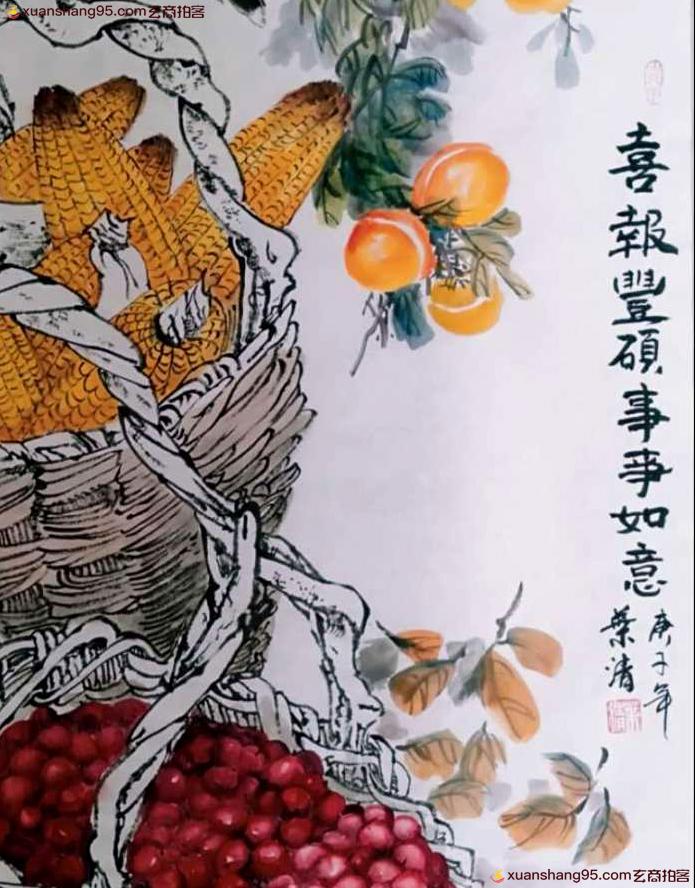 xuanshang95.com玄商拍客
喜報豐碩事事如意
庚子年
葉清
xuanshang95.com玄商拍客